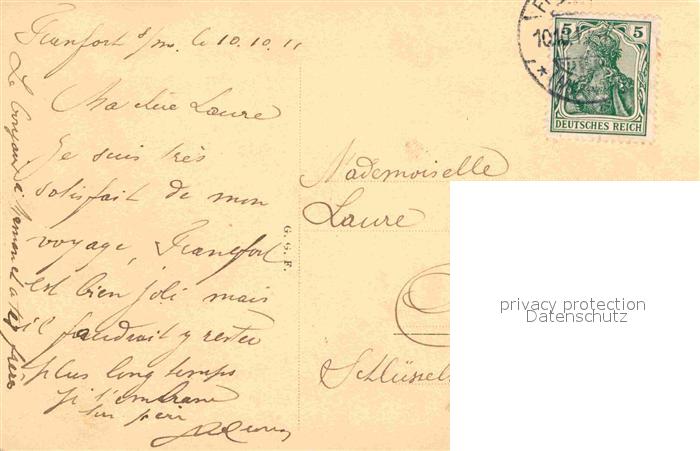 Francfort s/m. le 10.10.11
Ma chère Laure
Je suis très
satisfait de mon
voyage, Francfort
est bien joli mais
il faudrait y rester
plus long temps
Je t'embrasse
ton père
Le bonjour à Maman et à tes frères
G. G. F.
Mademoiselle
Laure
Schlüssel
10.10
5 5
DEUTSCHES REICH
privacy protection
Datenschutz